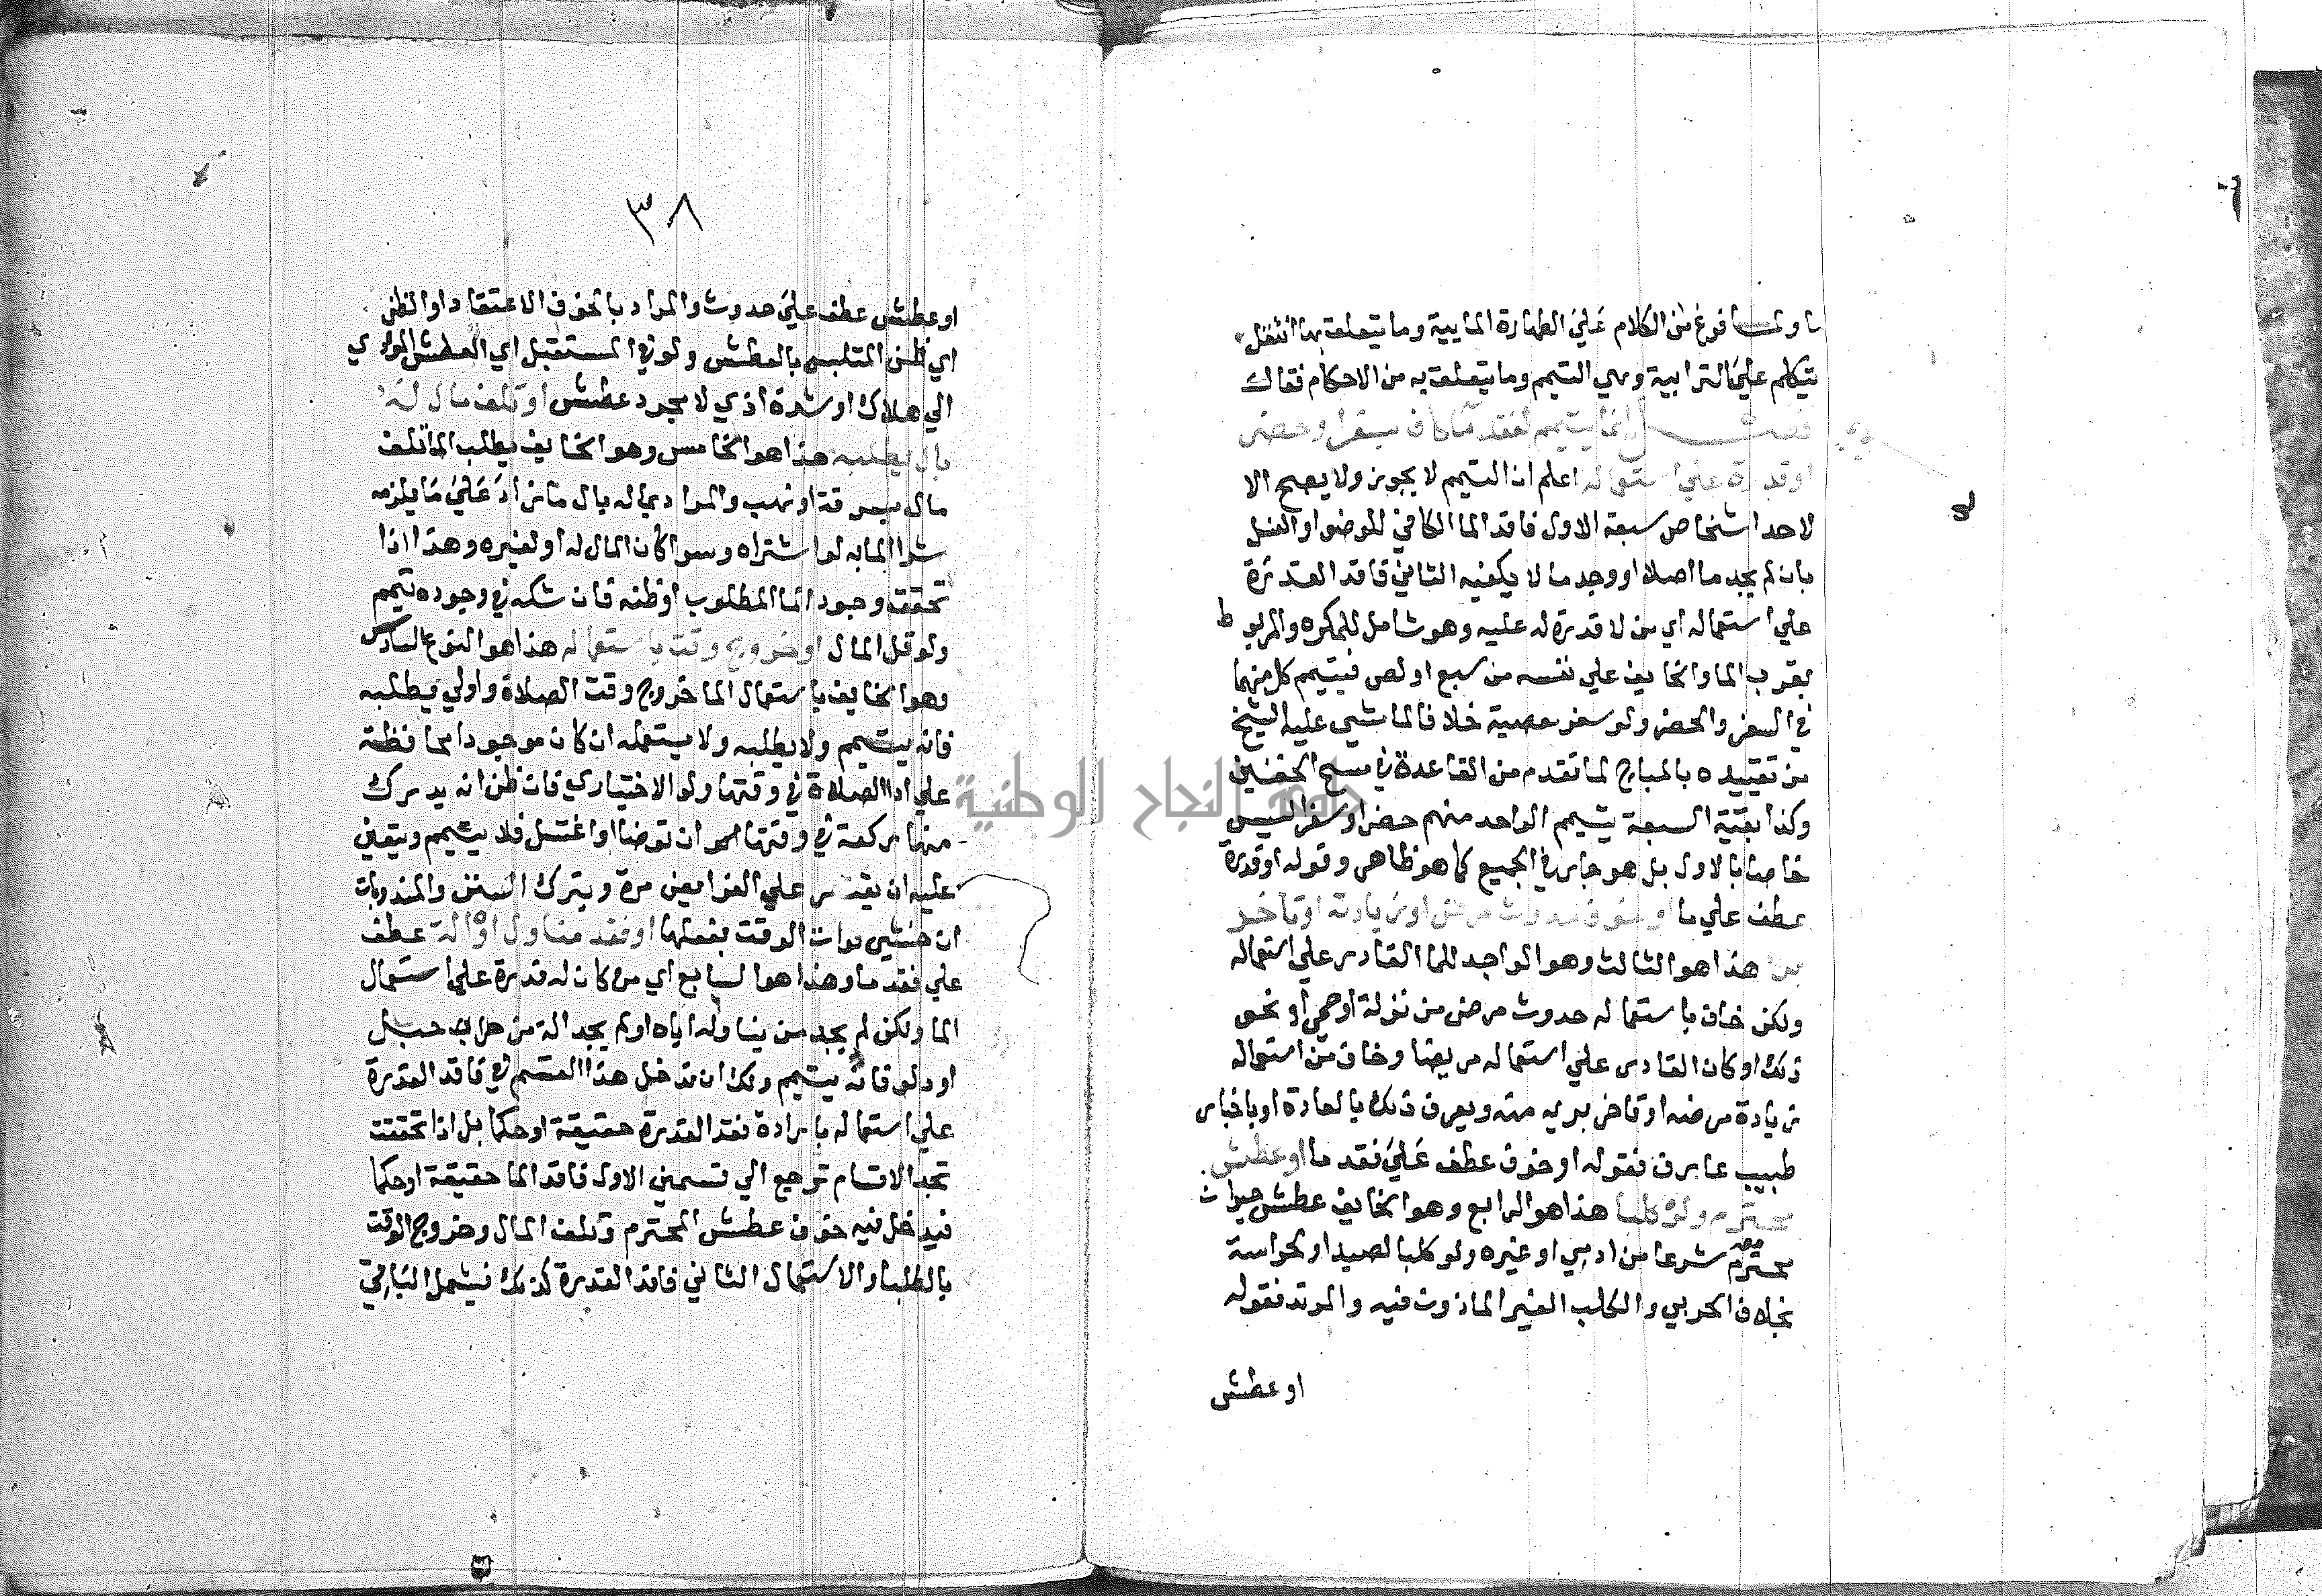 ما ولما فرغ من الكلام علي الطهارة المايية وما يتعلق بها انتقل
يتكلم علي الترابية وهي التيمم وما يتعلق به من الاحكام فقال
فصل انما يتيمم لفقد ماء كاف بسفر او حضر
او قدرة علي استعماله اعلم ان التيمم لا يجوز ولا يصح الا
لاحد اشخاص سبعة الاول فاقد الما الكافي للوضو او الغسل
بان لم يجد ما اصلا او وجد ما لا يكفيه الثاني فاقد القدرة
علي استعماله اي من لا قدرة له عليه وهو شامل للمكره والمربوط
بقرب الما والخايف علي نفسه من سبع او لص فيتيمم كل منهما
في السفر والحضر ولو سفر معصية خلافا لما مشي عليه الشيخ
من تقييده بالمباح لما تقدم من القاعدة في مسح الخفين
وكذا بقية السبعة يتيمم الواحد منهم حضرا او سفرا ليس
خاصا بالاول بل هو جار في الجميع كما هو ظاهر وقوله او قدرة
عطف علي ما او خوف حدوث مرض او زيادته او تاخر
برء هذا هو الثالث وهو الواجد للما القادر علي استعماله
ولكن خاف باستعماله حدوث مرض من نزلة او حمي او نحو
ذلك او كان القادر علي استعماله مريضا وخاف من استعماله
زيادة مرضه او تاخر بريه منه ويعرف ذلك بالعادة او باخبار
طبيب عارف فقوله او خوف عطف علي فقد ما او عطش
محترم ولو كلبا هذا هو الرابع وهو الخايف عطش حيوان
محترم معه شرعا من ادمي او غيره ولو كلبا لصيد او لحراسة
بخلاف الحربي والكلب الغير الماذون فيه والمرتد فقوله
او عطش
٣٨
او عطش عطف علي حدوث والمراد بالخوف الاعتقاد او الظن
اي ظن المتلبس بالعطش ولو في المستقبل اي العطش المودي
الي هلاك او شدة اذي لا مجرد عطش او تلف مال له
بال بطلبه هذا هو الخامس وهو الخايف بطلب الما تلف
مال بسرقة او نهب والمراد بما له بال ما زاد علي ما يلزمه
شرا الما به لو اشتراه وسوا كان المال له او لغيره وهذا اذا
تحقق وجود الما المطلوب او ظنه فان شك في وجوده تيمم
ولو قل المال او خروج وقت باستعماله هذا هو النوع السادس
وهو الخايف باستعمال الما خروج وقت الصلاة واولي بطلبه
فانه يتيمم ولا يطلبه ولا يستعمله ان كان موجودا محافظة
علي ادا الصلاة في وقتها ولو الاختياري فان ظن انه يدرك
منها ركعة في وقتها ان توضا او اغتسل فلا يتيمم ويتعين
عليه ان يقتصر علي الفرايض مرة ويترك السنن والمندوبات
ان خشي فوات الوقت بفعلها او فقد مناول او الة عطف
علي فقد ما وهذا هو السابع اي من كان له قدرة علي استعمال
الما ولكن لم يجد من يناوله اياه او لم يجد الة من حبل
او دلو فانه يتيمم ولك ان تدخل هذا القسم في فاقد القدرة
علي استعماله بارادة فقد القدرة حقيقة او حكما بل اذا تحققت
تجد الاقسام ترجع الي قسمين الاول فاقد الما حقيقة او حكما
فيدخل فيه خوف عطش المحترم وتلف المال وخروج الوقت
بالطلب او الاستعمال الثاني فاقد القدرة كذلك فيشمل الباقي